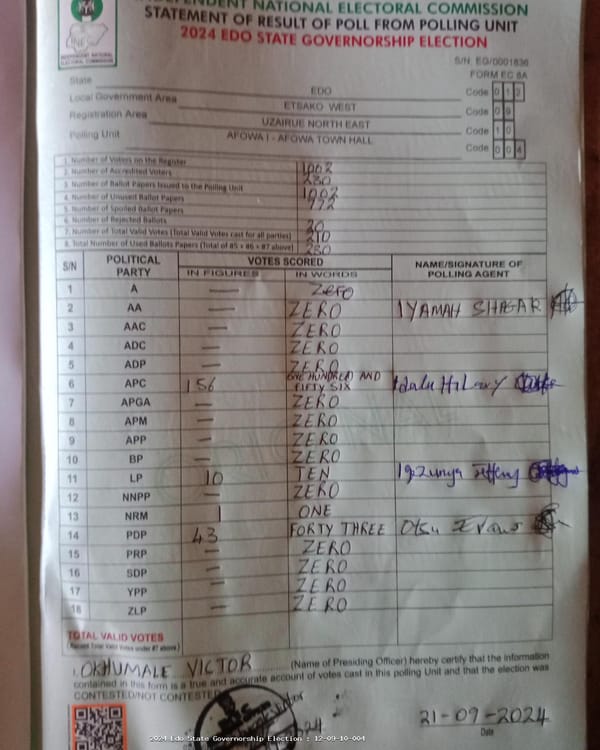 INDEPENDENT NATIONAL ELECTORAL COMMISSION
STATEMENT OF RESULT OF POLL FROM POLLING UNIT
2024 EDO STATE GOVERNORSHIP ELECTION
INEC
INDEPENDENT NATIONAL ELECTORAL COMMISSION
S/N: EG/0001836
FORM EC 8A
State EDO Code 0 1 2
Local Government Area ETSAKO WEST Code 0 9
Registration Area UZAIRUE NORTH EAST Code 1 0
Polling Unit AFOWA I - AFOWA TOWN HALL Code 0 0 4
1. Number of Voters on the Register 1002
2. Number of Accredited Voters 230
3. Number of Ballot Papers Issued to the Polling Unit 1002
4. Number of Unused Ballot Papers 772
5. Number of Spoiled Ballot Papers
6. Number of Rejected Ballots 20
7. Number of Total Valid Votes (Total Valid Votes cast for all parties) 210
8. Total Number of Used Ballots Papers (Total of #5 + #6 + #7 above) 230
S/N POLITICAL PARTY VOTES SCORED NAME/SIGNATURE OF POLLING AGENT
IN FIGURES IN WORDS
1 A — ZERO
2 AA — ZERO IYAMAH SHAGAR
3 AAC — ZERO
4 ADC — ZERO
5 ADP — ZERO
6 APC 156 ONE HUNDRED AND FIFTY SIX Idalu Hilary
7 APGA — ZERO
8 APM — ZERO
9 APP — ZERO
10 BP — ZERO
11 LP 10 TEN
12 NNPP — ZERO
13 NRM 1 ONE
14 PDP 43 FORTY THREE Otsu
15 PRP — ZERO
16 SDP — ZERO
17 YPP — ZERO
18 ZLP — ZERO
TOTAL VALID VOTES
(Record Total Valid Votes under #7 above)
I, OKHUMALE VICTOR (Name of Presiding Officer) hereby certify that the information
contained in this form is a true and accurate account of votes cast in this polling Unit and that the election was
CONTESTED/NOT CONTESTED
21-09-2024
Date
2024 Edo State Governorship Election : 12-09-10-004